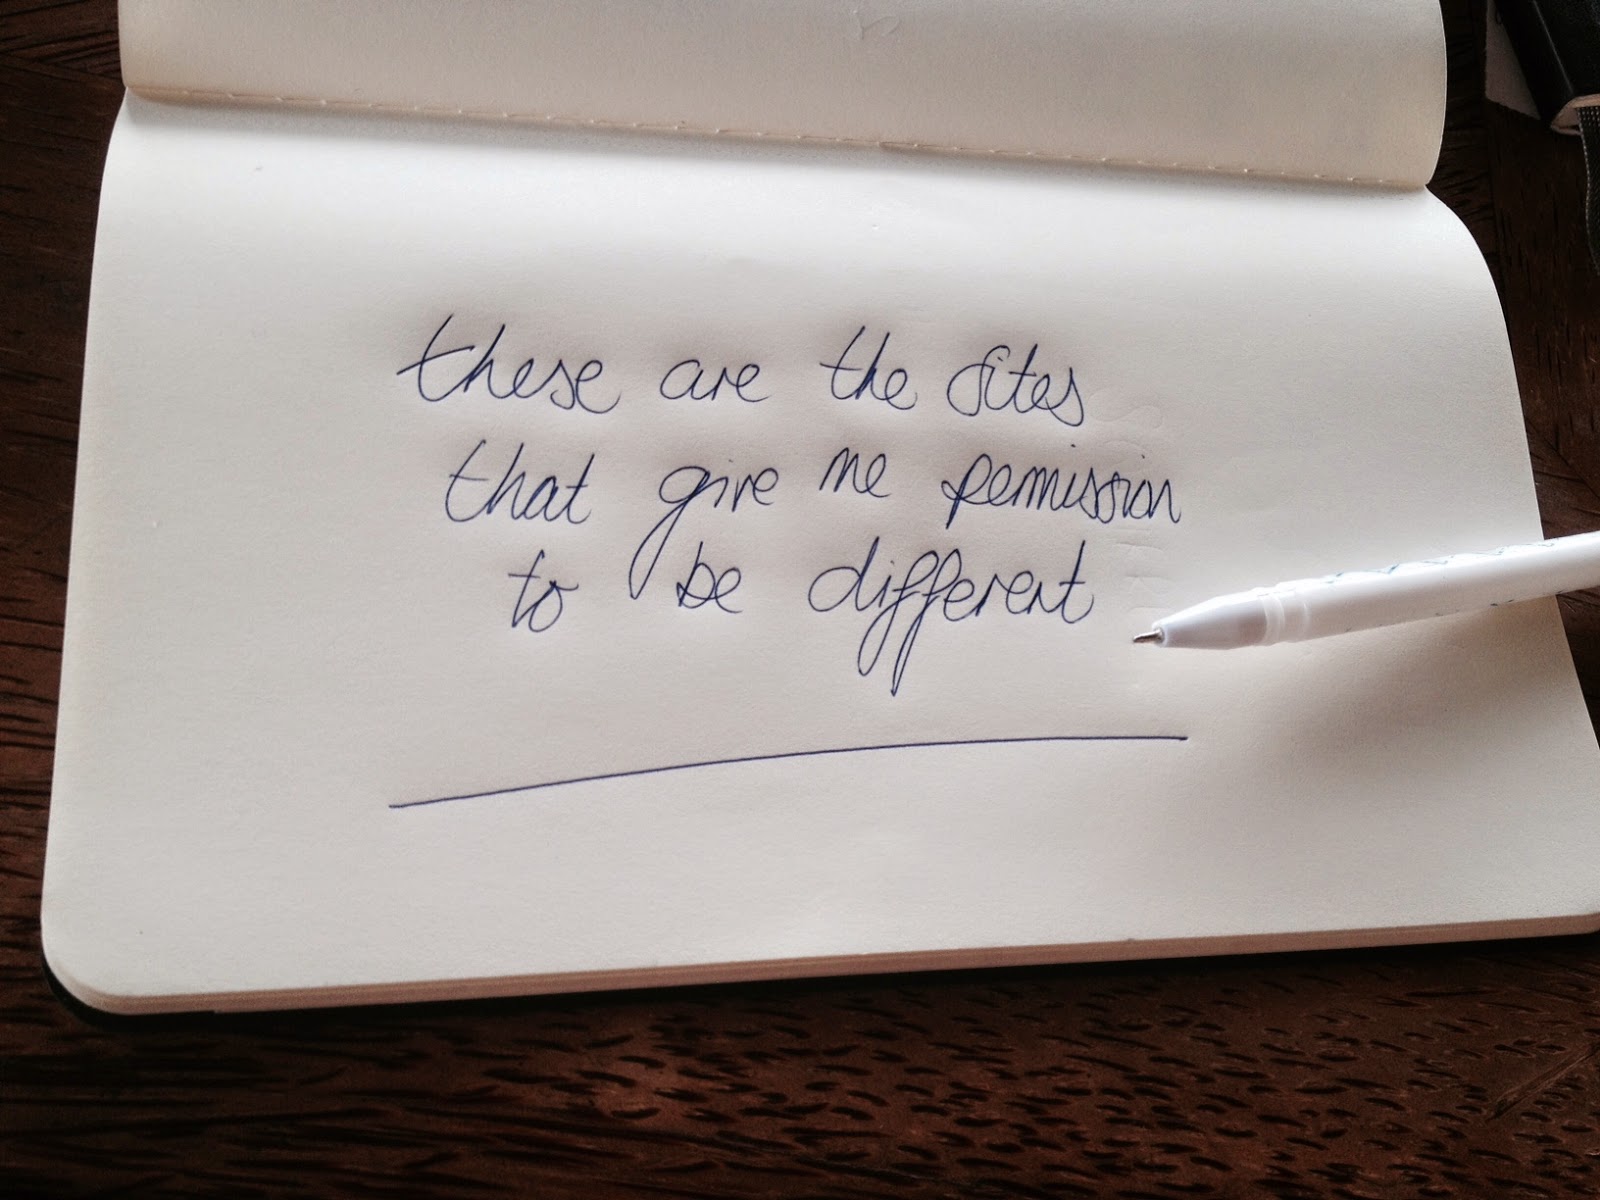 these are the sites
that give me permission
to be different